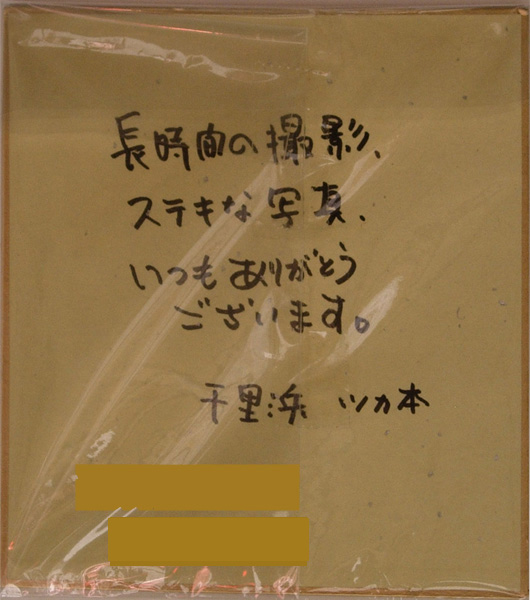 長時間の撮影、
ステキな写真、
いつもありがとう
ございます。
千里浜 ツカ本